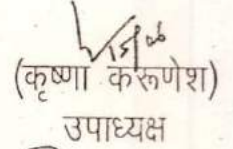 (कृष्णा करूणेश)
उपाध्यक्ष